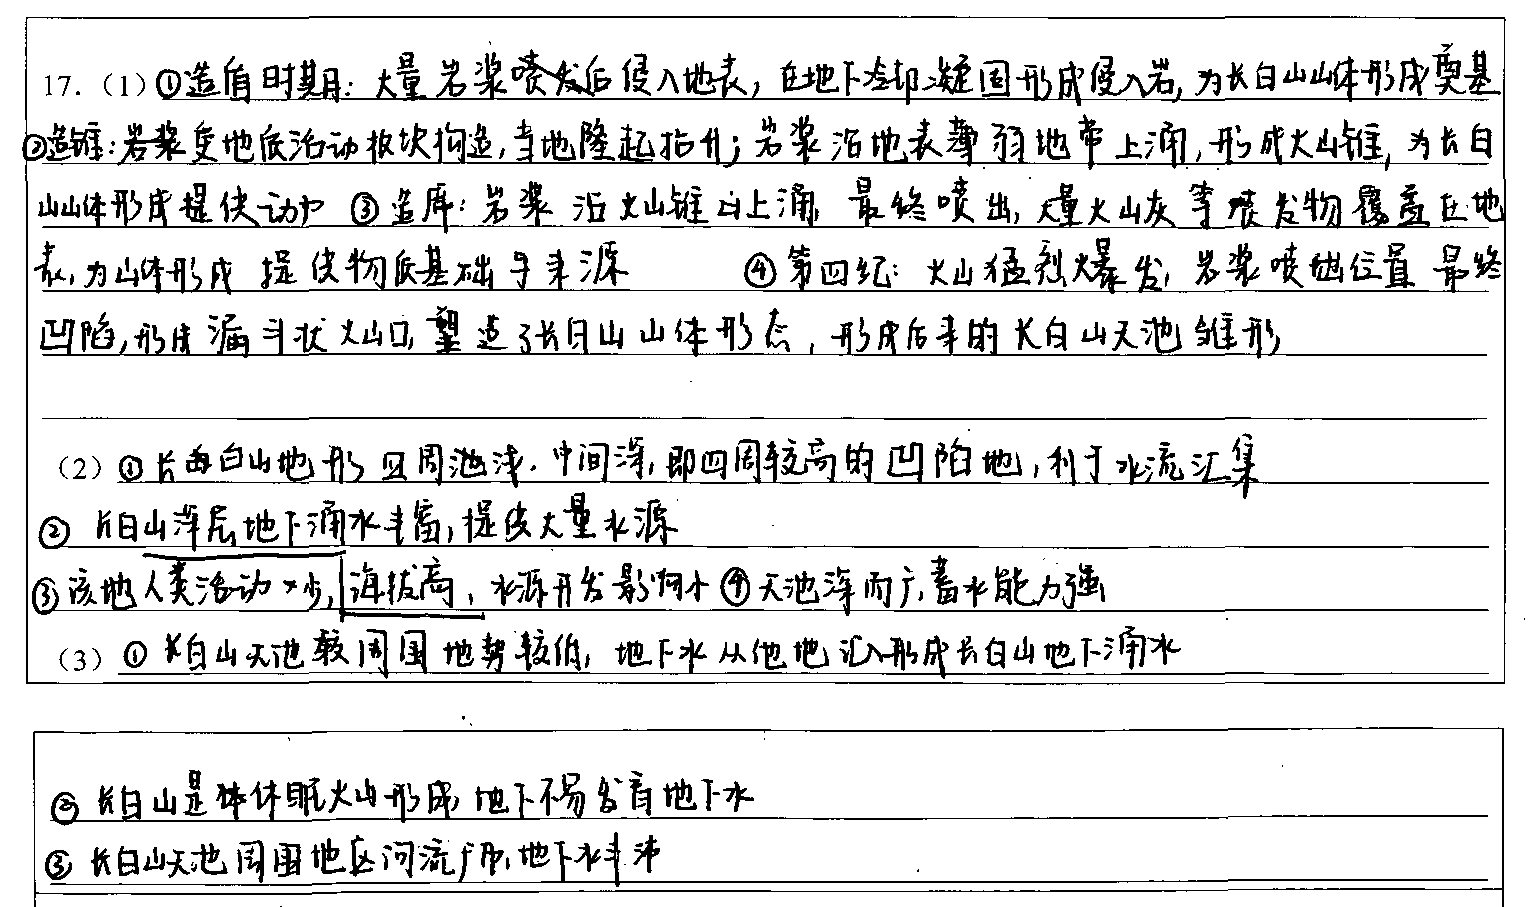 17.（1）①造盾时期：大量岩浆喷发后侵入地表，在地下冷却凝固形成侵入岩，为长白山山体形成奠基
②造锥：岩浆受地底活动板块构造，当地隆起抬升；岩浆沿地表薄弱地带上涌，形成火山锥，为长白
山山体形成提供动力 ③造席：岩浆沿火山锥向上涌，最终喷出，大量火山灰等喷发物覆盖在地
表，为山体形成提供物质基础与来源 ④第四纪：火山猛烈爆发，岩浆喷出位置最终
凹陷，形成漏斗状火山口，塑造了长白山山体形态，形成后来的长白山天池雏形
（2）①长白山地形四周池浅，中间深，即四周较高的凹陷地，利于水流汇集
②长白山深层地下涌水丰富，提供大量水源
③该地人类活动少，海拔高，水源开发影响小 ④天池深而广，蓄水能力强
（3）①长白山天池较周围地势较低，地下水从他地汇入形成长白山地下涌水
②长白山是休眠火山形成，地下不易发育地下水
③长白山天池周围地区河流广布，地下水丰沛